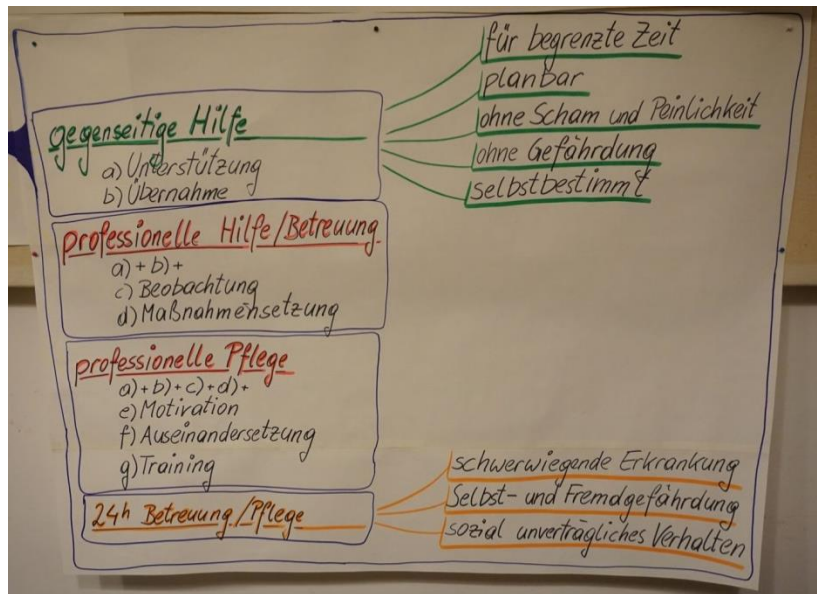 gegenseitige Hilfe
a) Unterstützung
b) Übernahme
für begrenzte Zeit
planbar
ohne Scham und Peinlichkeit
ohne Gefährdung
selbstbestimmt
professionelle Hilfe/Betreuung
a) + b) +
c) Beobachtung
d) Maßnahmensetzung
professionelle Pflege
a) + b) + c) + d) +
e) Motivation
f) Auseinandersetzung
g) Training
24h Betreuung/Pflege
schwerwiegende Erkrankung
Selbst- und Fremdgefährdung
sozial unverträgliches Verhalten